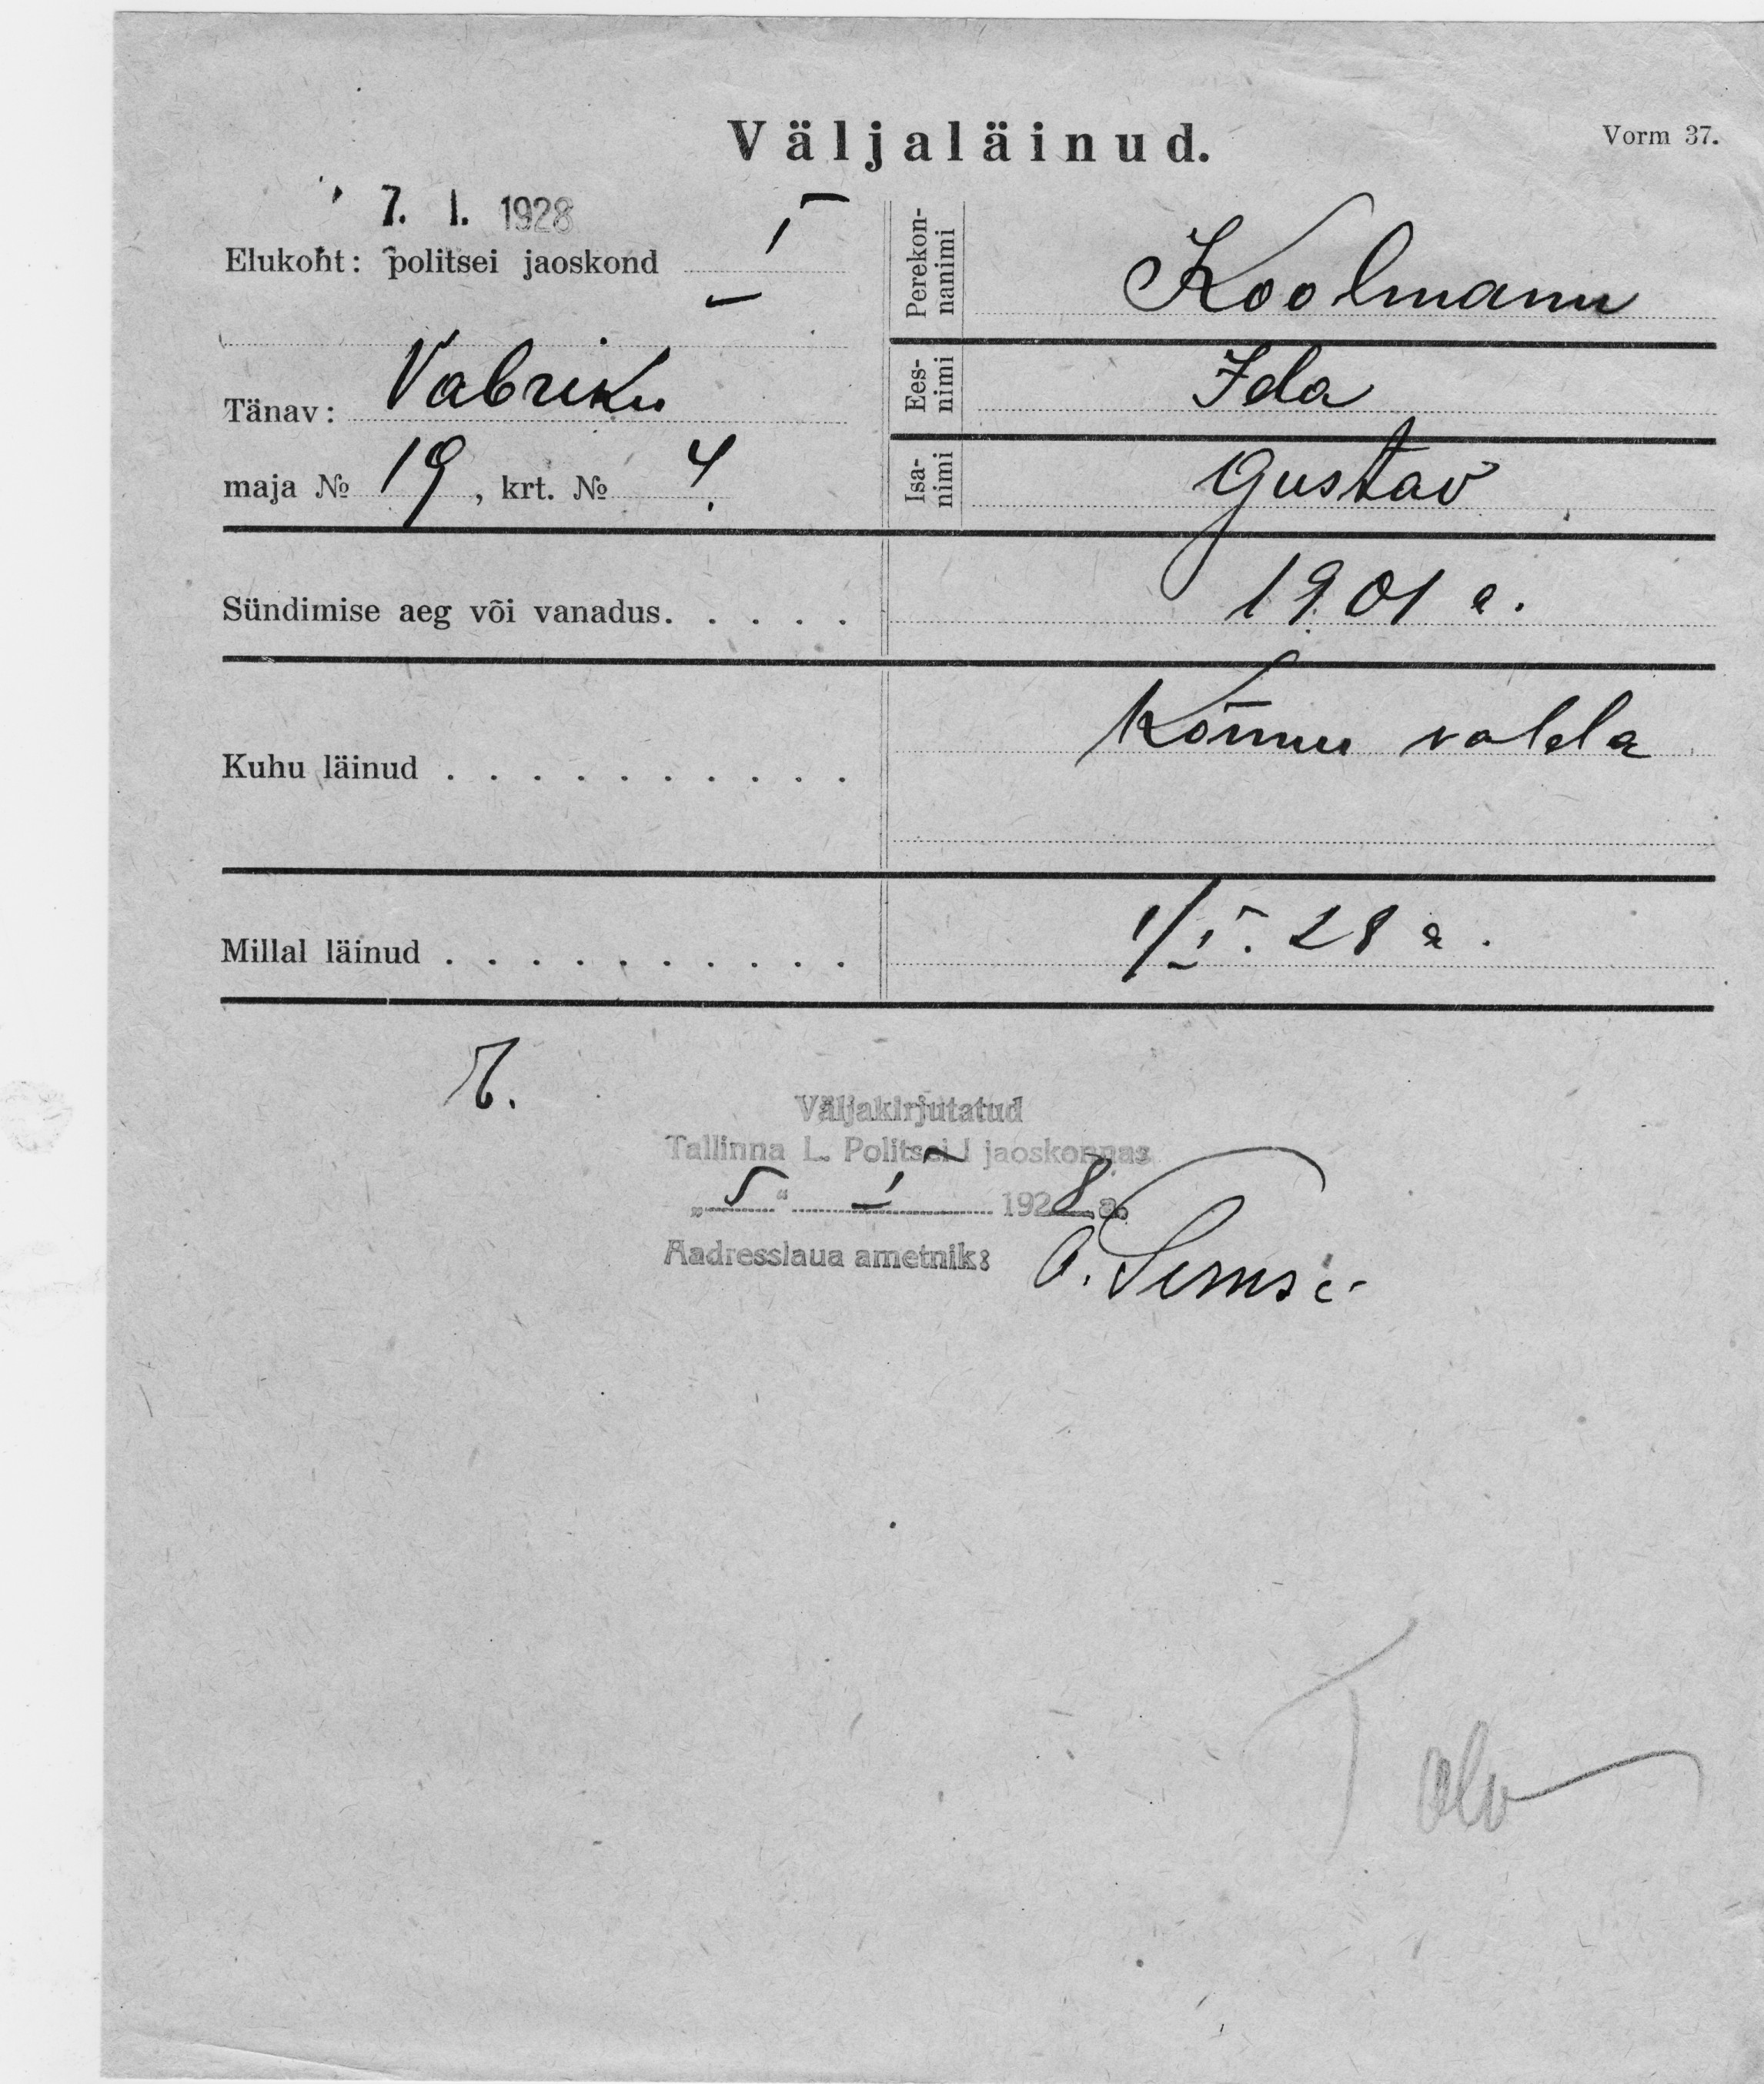 Väljaläinud.
Vorm 37.
7. 1. 1928
Elukoht: politsei jaoskond I
Tänav: Vabriku
maja № 19, krt. № 4.
Perekon-
nanimi
Koolmann
Ees-
nimi
Ida
Isa-
nimi
Gustav
Sündimise aeg või vanadus. . . . . 1901 a.
Kuhu läinud . . . . . . . . . . Kõnnu valda
Millal läinud . . . . . . . . . . 1/I. 28 a.
Väljakirjutatud
Tallinna L. Politsei I jaoskonnas
„5“ I 1928 a.
Aadresslaua ametnik: